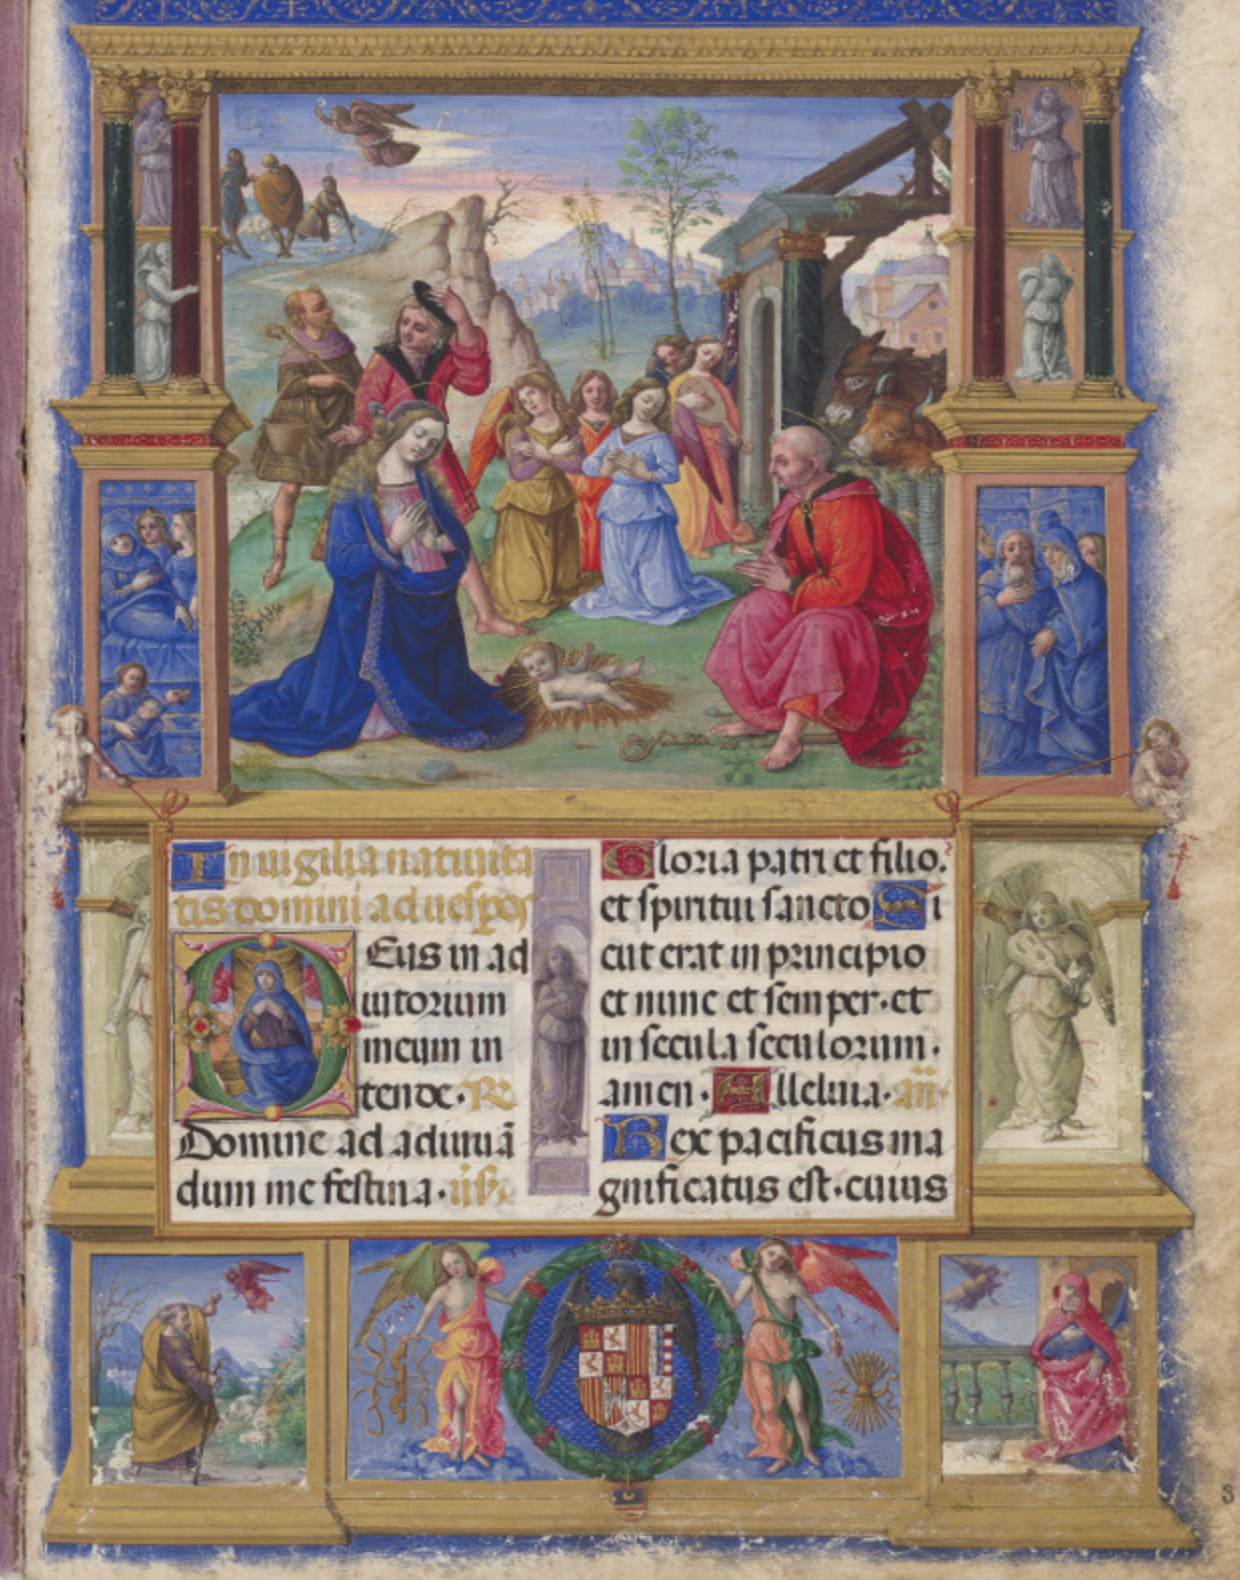 In uigilia natiuita
tis domini ad uesp̄os
Deus in ad
iutorium
meum in
tende · R̄
Domine ad adiuuā
dum me festina · v̄s.
Gloria patri et filio.
et spiritui sancto Si
cut erat in principio
et nunc et semper · et
in secula seculorum ·
amen · Alleluia · an̄ ·
Rex pacificus ma
gnificatus est · cuius
TAN TO MO NTA
3